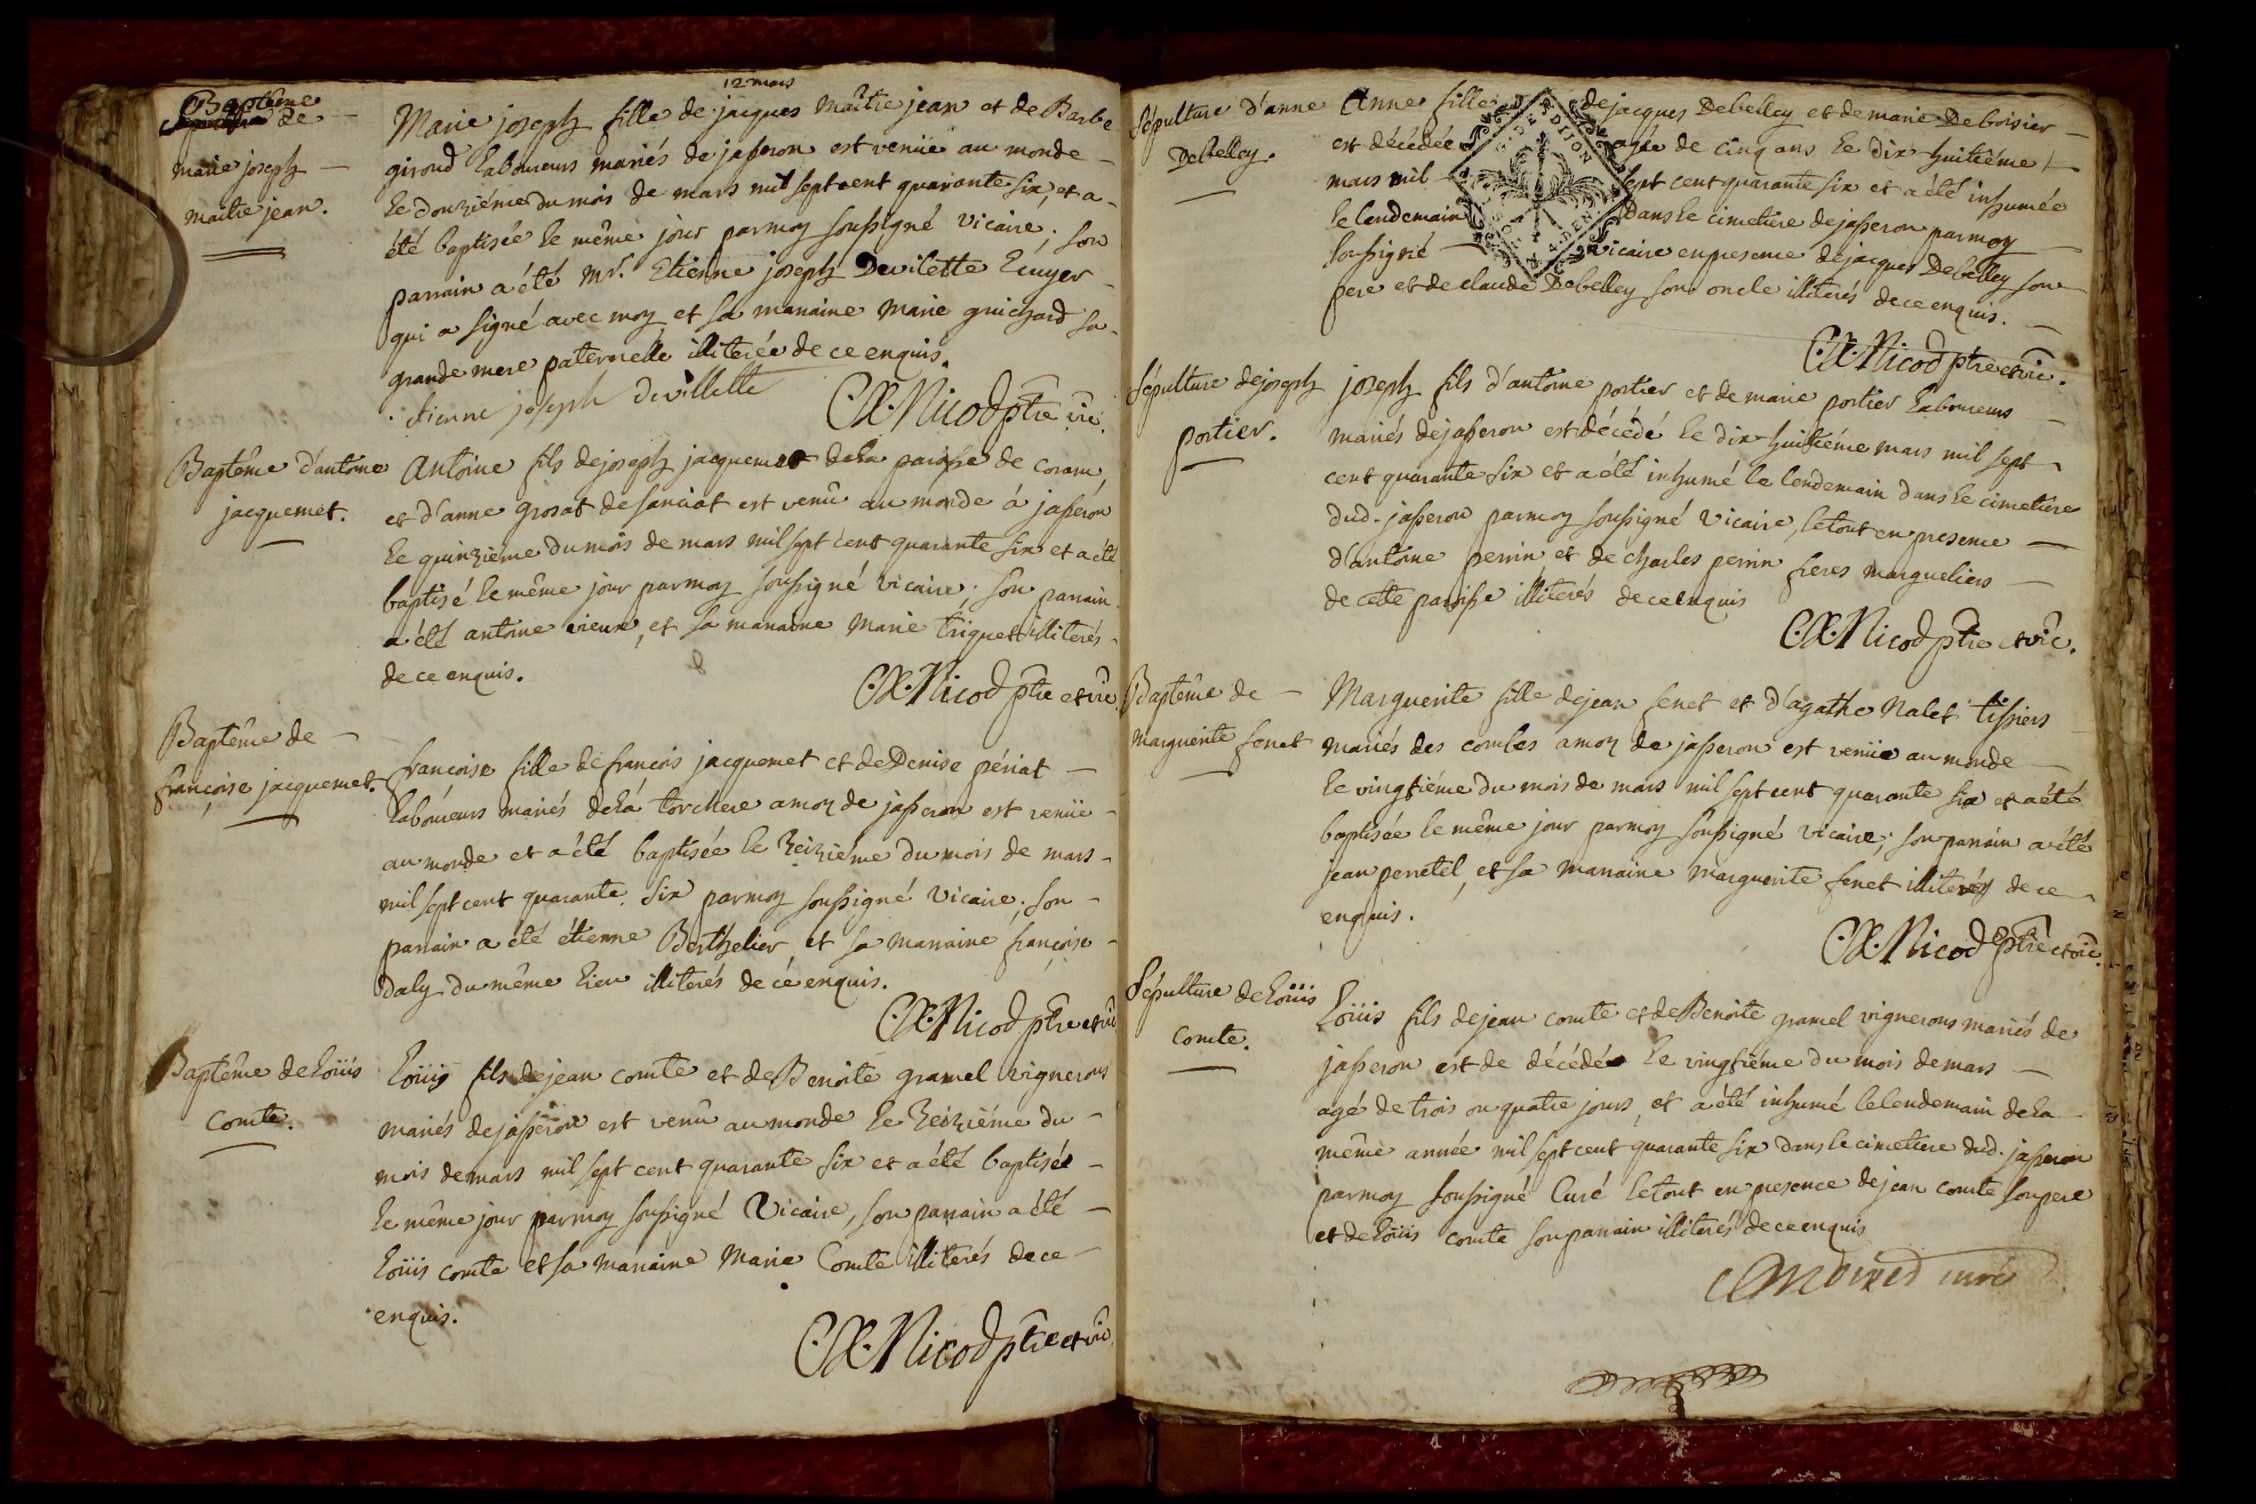 12 mars
Baptême
de
marie joseph
maitre jean.
Marie joseph fille de jacques maitre jean et de Barbe
giroud Laboureurs mariés de jasseron est venüe au monde
le douziéme du mois de mars mil sept cent quarante six, et a
été baptisée le même jour par moy soussigné vicaire, son
parrain a été mr. Etienne joseph De vilette Ecuyer
qui a signé avec moy et sa marraine marie guichard sa
grande mere paternelle illiterée de ce enquis.
étienne joseph de villette
C.X. Nicod ptre vic.
Baptême d'antoine
jacquemet.
Antoine fils de joseph jacquemet de la paroisse de Coran,
et d'anne grosat de sanciat est venû au monde à jasseron
le quinziéme du mois de mars mil sept cent quarante six et a été
baptisé le même jour par moy soussigné vicaire; son parrain
a été antoine vieux, et sa marraine marie triquet illiterés
de ce enquis.
C.X. Nicod ptre et vic.
Baptême de
françoise jacquemet.
françoise fille de françois jacquemet et de Denise périat
Laboureurs mariés de la torchere amoz de jasseron est venüe
au monde et a été baptisée le seiziéme du mois de mars
mil sept cent quarante six par moy soussigné vicaire, son
parrain a été étienne Berthelier et sa marraine françoise
Daly du même lieu illiterés de ce enquis.
C.X. Nicod ptre et vic
Baptême de Loüis
Comte.
Loüis fils de jean comte et de Benoite gramel vignerons
mariés de jasseron est venû au monde le seiziéme du
mois de mars mil sept cent quarante six et a été baptisée
le même jour par moy soussigné Vicaire, son parrain a été
Loüis comte et sa marraine marie Comte illiterés de ce
enquis.
C.X. Nicod ptre et vic
Sépulture d'anne
Debelley.
Anne fille de jacques Debelley et de marie Deboisier
est décédée agée de cinq ans le dix huitiéme
mars mil sept cent quarante six et a été inhumée
le lendemain dans le cimetiere de jasseron par moy
soussigné vicaire en presence de jacques Debelley son
pere et de claude Debelley son oncle illiterés de ce enquis.
C.X. Nicod ptre et vic.
Sépulture de joseph
portier.
joseph fils d'antoine portier et de marie portier Laboureurs
mariés de jasseron est décédé le dix huitiéme mars mil sept
cent quarante six et a été inhumé le lendemain dans le cimetiere
dud. jasseron par moy soussigné vicaire, le tout en presence
d'antoine perrin et de charles perrin freres margueliers
de cette paroisse illiterés de ce enquis
C.X. Nicod ptre et vic.
Baptême de
Marguerite fenet
Marguerite fille de jean fenet et d'agathe Nalet tissiers
mariés des combes amoz de jasseron est venüe au monde
le vingtiéme du mois de mars mil sept cent quarante six et a été
baptisée le même jour par moy soussigné vicaire, son parrain a été
jean perretel, et sa marraine marguerite fenet illiterés de ce
enquis.
C.X. Nicod ptre et vic.
Sépulture de Loüis
comte.
Loüis fils de jean comte et de Benoite gramel vignerons mariés de
jasseron est de décédé le vingtiéme du mois de mars
agé de trois ou quatre jours, et a été inhumé le lendemain de la
même année mil sept cent quarante six dans le cimetiere dud. jasseron
par moy soussigné Curé le tout en presence de jean comte son pere
et de Loüis comte son parrain illiterés de ce enquis
curé